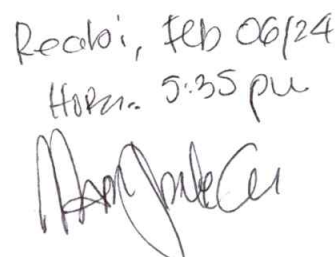 Recibi, Feb 06/24
Hora. 5:35 pm